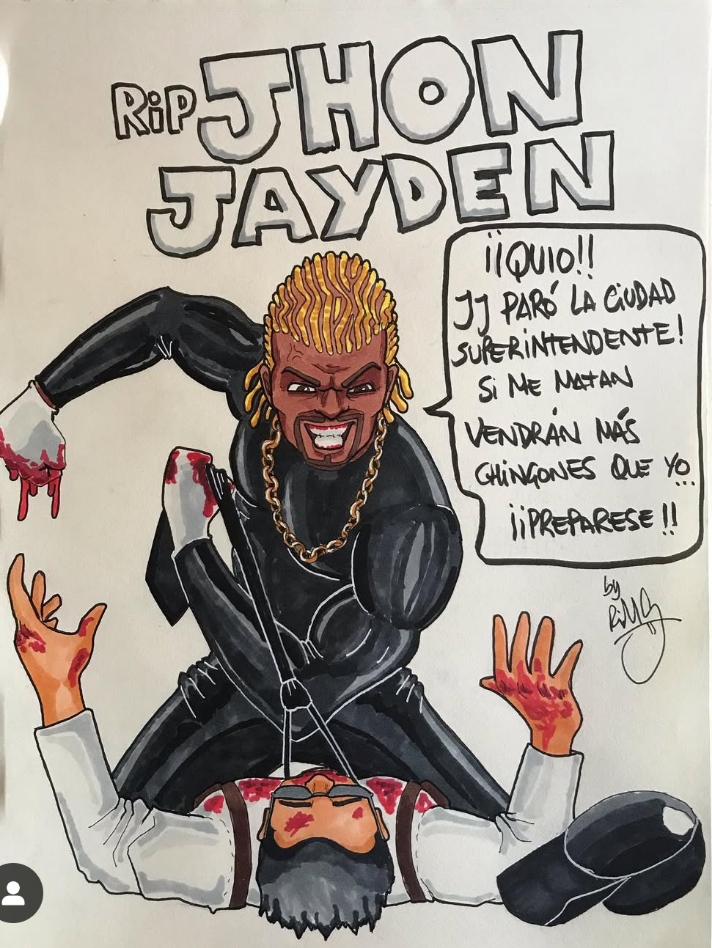 RiP JHON
JAYDEN
¡¡QUIO!!
JJ PARÓ LA CiUDAD
SUPERiNTENDENTE!
Si ME MATAN
VENDRÁN MÁS
CHiNGONES QUE YO..
¡¡PREPARESE!!
by